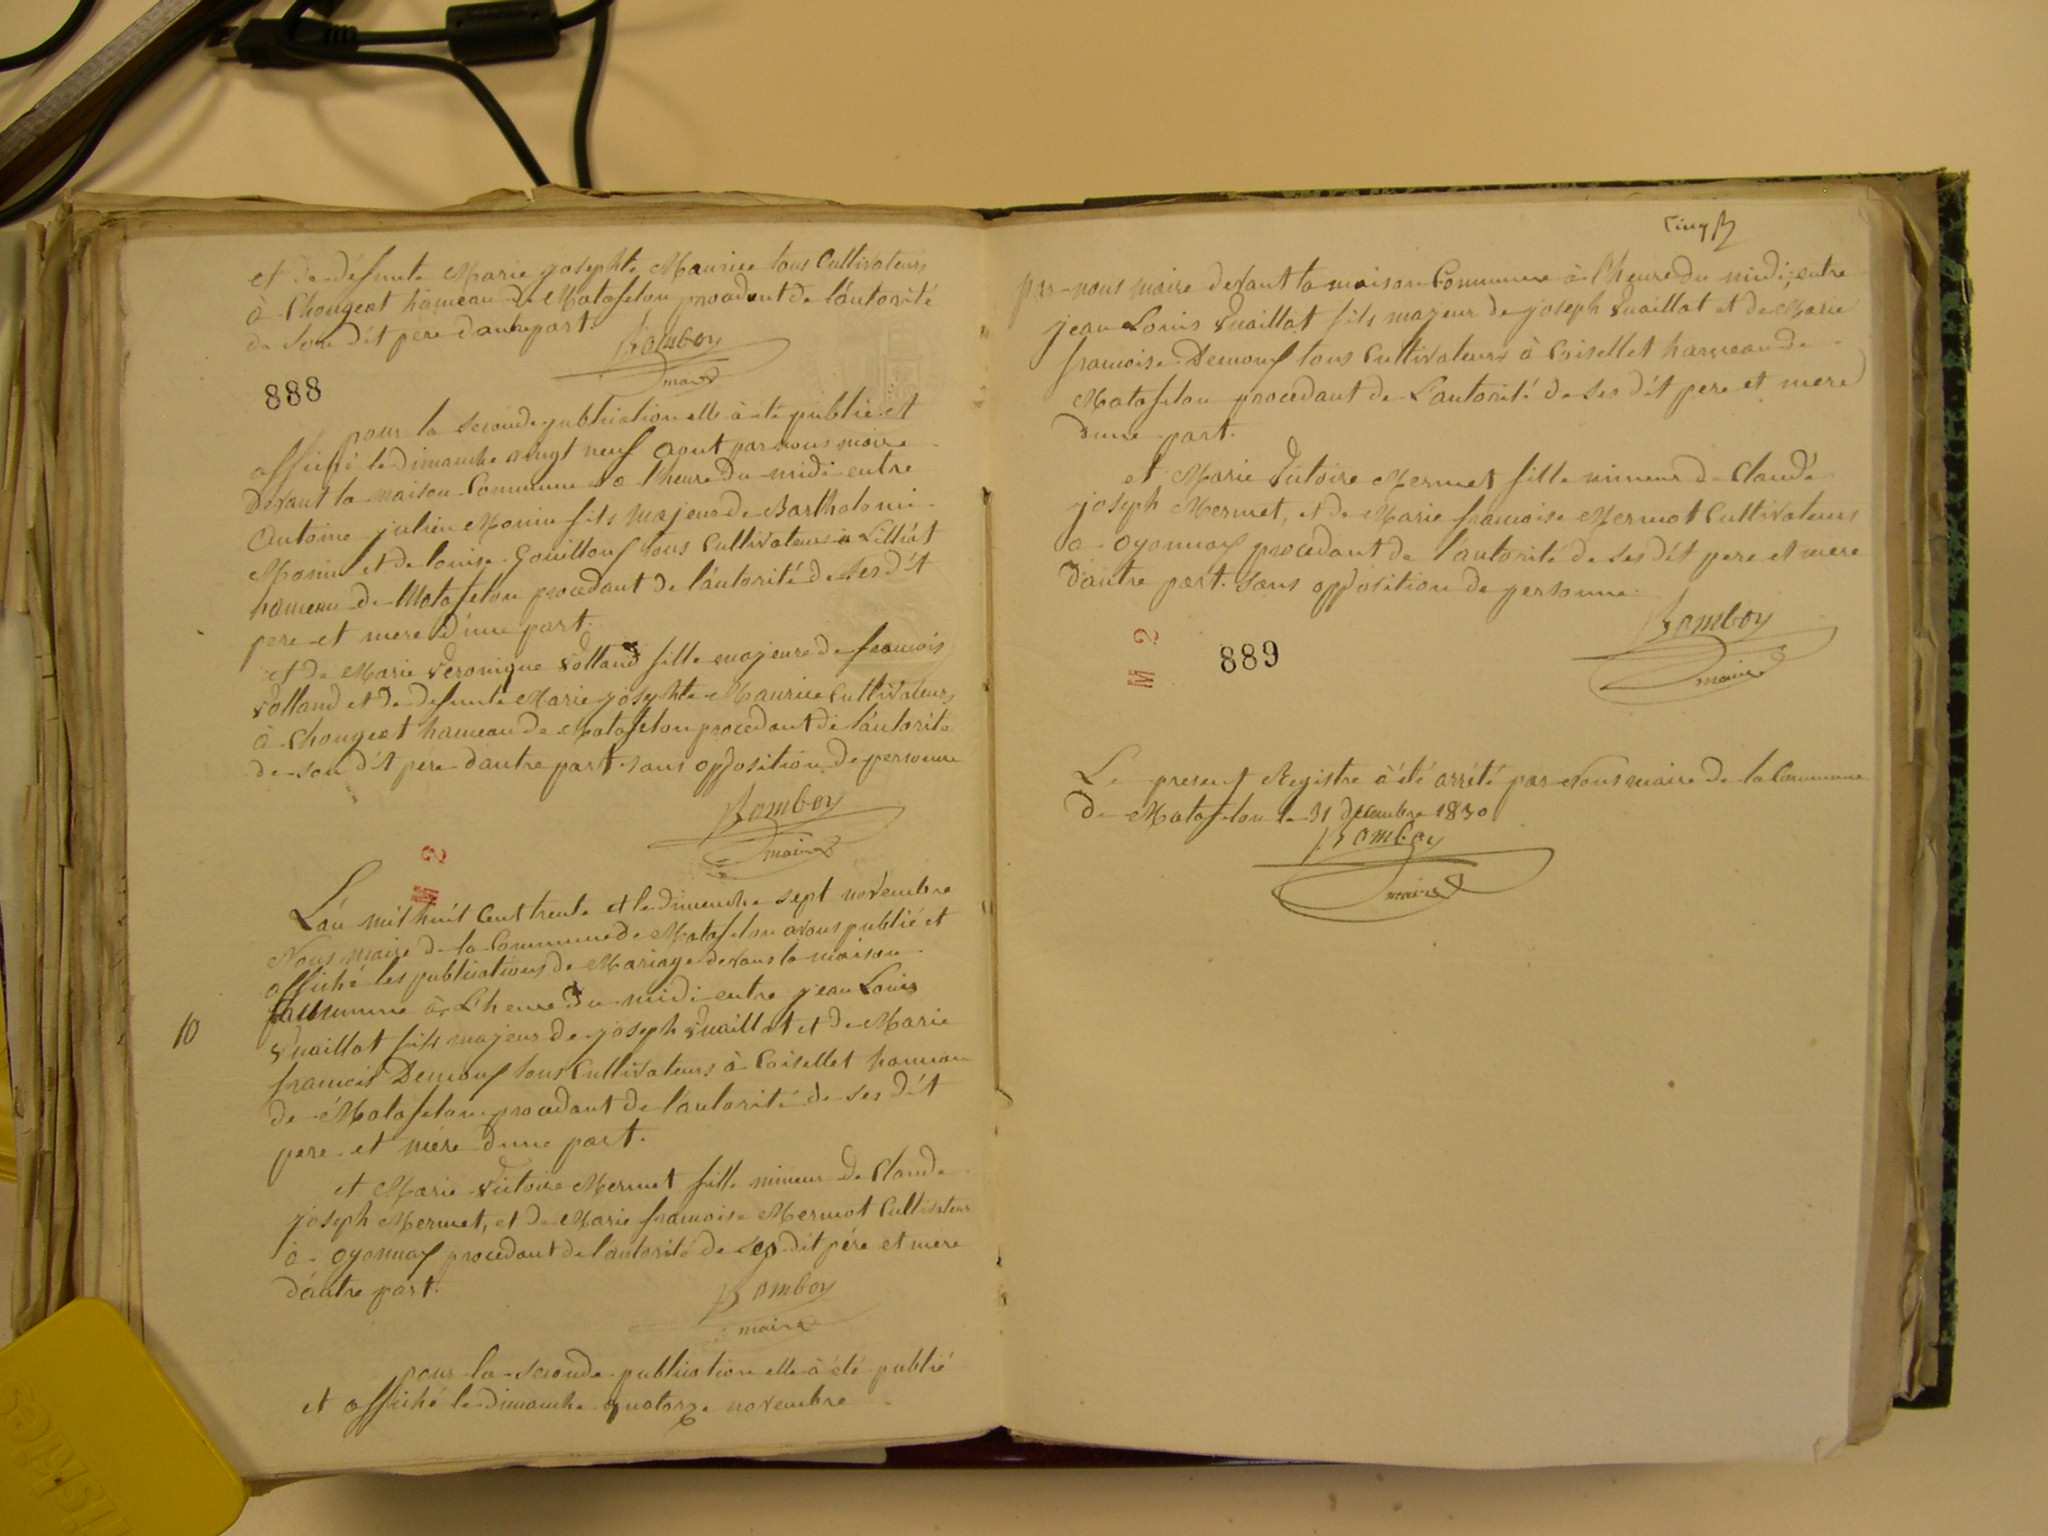 et de défunte Marie josephte Maurice tous Cultivateurs
à Chougeat hameau de Matafelon procedant de l'autorité
de Son dit pere d'autre part.
Bomboy
maire
888
pour la seconde publication elle à été publié et
affiché le dimanche vingt neuf Aout par nous maire
devant la maison Commune a l'heure du midi entre
Antoine julien Monin fils Majeur de Bartholomi
Monin et de louise Gouilloux tous Cultivateurs à Lilliat
hameau de Matafelon procedant de l'autorité de ses dit
pere et mere d'une part.
et de Marie Veronique Volland fille majeure de francois
Volland et de defunte Marie josephte Maurice Cultivateurs
à Chougeat hameau de Matafelon procedant de l'autorité
de son dit pere d'autre part sans opposition de personne
Bomboy
maire
M 2
L'an mil huit Cent trente et le dimanche sept novembre
Nous maire de la Commune de Matafelon avons publié et
affiché les publications de Mariage devant la maison
Commune à L'heure du midi entre jean Louis
10
Vuaillat fils majeur de joseph Vuaillat et de Marie
francois Demoux tous Cultivateurs à Coisellet hameau
de Matafelon procedant de l'autorité de ses dit
pere et mère d'une part.
et Marie Victoire Mermet fille mineur de Claude
joseph Mermet, et de Marie francoise Mermot Cultivateurs
à oyonnax procedant de l'autorité de ses dit pére et mere
d'autre part.
Bomboy
maire
pour la seconde publication elle à été publié
et affiché le dimanche quatorze novembre
Cinq
par nous maire devant la maison Commune à l'heure du midi, entre
jean Louis Vuaillat fils majeur de joseph Vuaillat et de Marie
francoise Demoux tous Cultivateurs à Coisellet hameau de
Matafelon procedant de L'autorité de ses dit pere et mere
d'une part.
et Marie Victoire Mermet fille mineur de Claude
joseph Mermet, et de Marie francoise Mermot Cultivateurs
a oyonnax procedant de l'autorité de ses dit pere et mere
d'autre part. sans opposition de personne
Bomboy
maire
M 2
889
Le present Registre à été arrété par Nous maire de la Commune
de Matafelon le 31 decembre 1830
Bomboy
maire